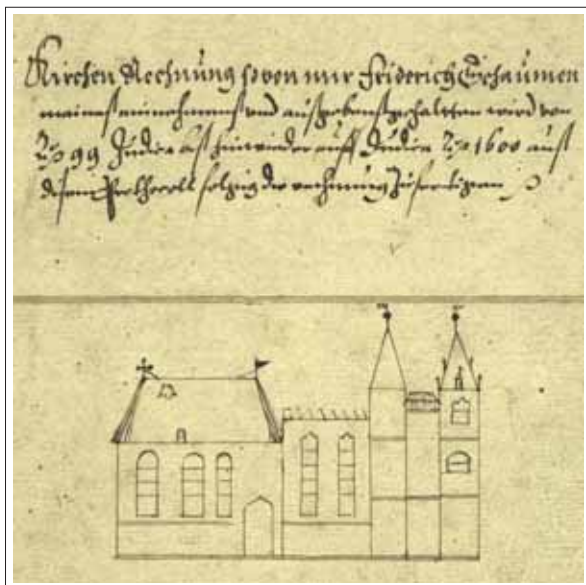 Kirchen Rechnung so von mir Friderich Schaumen
meines einnehmens und außgebens gehaltten wird von
99 Judica biß hinwieder auff Judica 1600 auß
disem der rechnung